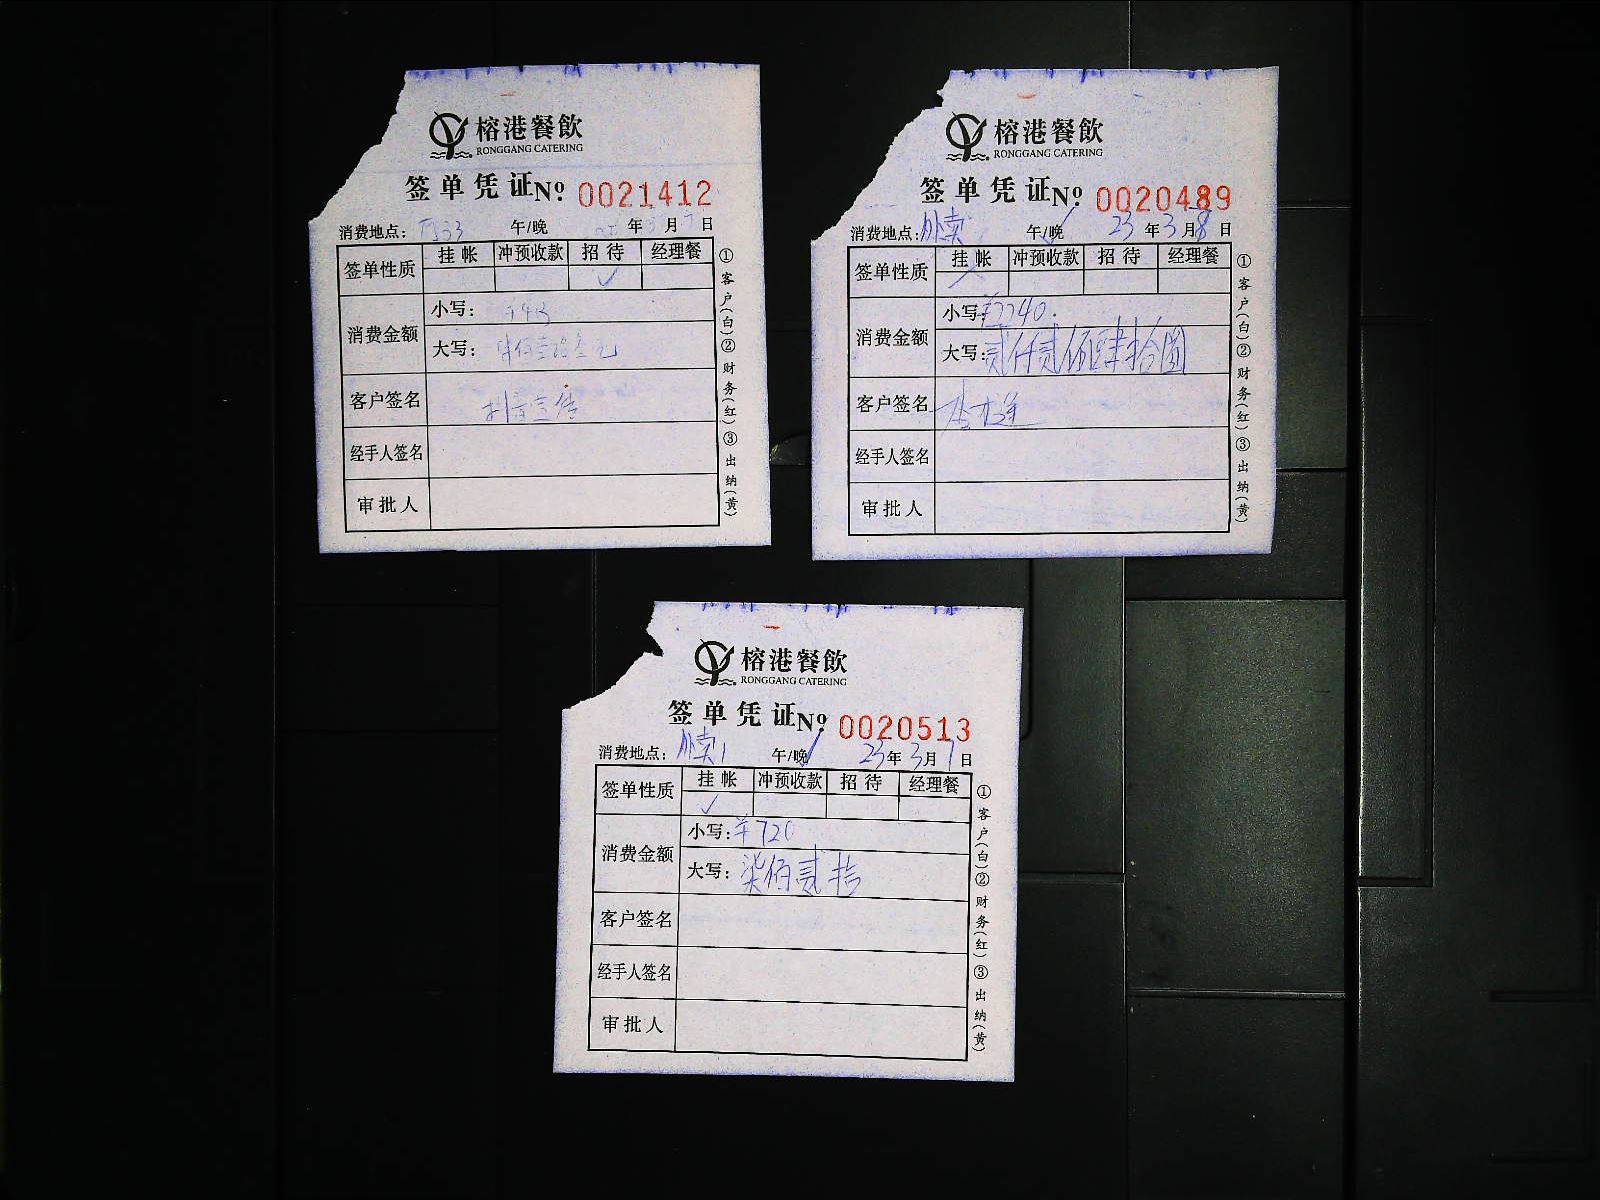 榕港餐飲
RONGGANG CATERING
签单凭证 Nº 0021412
消费地点: 午/晚 年3月7日
签单性质 挂帐 冲预收款 招待 经理餐
✓
消费金额 小写:
大写:
客户签名 抖音宣传
经手人签名
审批人
①客户(白)②财务(红)③出纳(黄)
榕港餐飲
RONGGANG CATERING
签单凭证 Nº 0020489
消费地点: 外卖 午/晚 ✓ 23年3月8日
签单性质 挂帐 冲预收款 招待 经理餐
✓
消费金额 小写: ¥2240.
大写: 贰仟贰佰肆拾圆
客户签名
经手人签名
审批人
①客户(白)②财务(红)③出纳(黄)
榕港餐飲
RONGGANG CATERING
签单凭证 Nº 0020513
消费地点: 外卖1 午/晚 ✓ 23年3月7日
签单性质 挂帐 冲预收款 招待 经理餐
✓
消费金额 小写: ¥720
大写: 柒佰贰拾
客户签名
经手人签名
审批人
①客户(白)②财务(红)③出纳(黄)